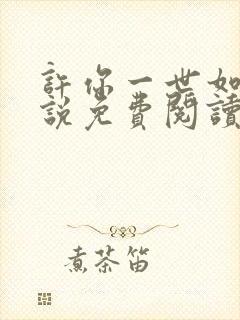 許你一世如
說免費閱讀
煮茶笛